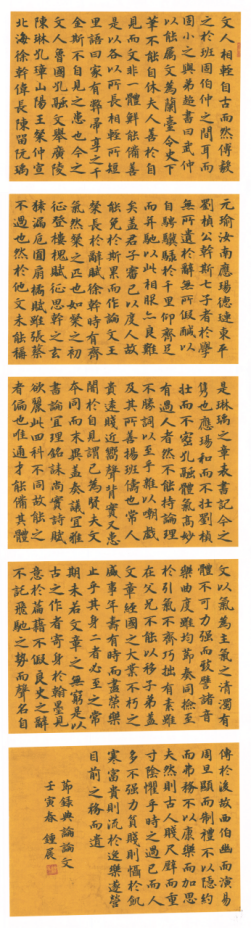 文人相輕自古而然傅毅
之於班固伯仲之間耳而
固小之與弟超書曰武仲
以能屬文為蘭臺令史下
筆不能自休夫人善於自
見而文非一體鮮能備善
是以各以所長相輕所短
里語曰家有弊帚享之千
金斯不自見之患也今之
文人魯國孔融文舉廣陵
陳琳孔璋山陽王粲仲宣
北海徐幹偉長陳留阮瑀
元瑜汝南應瑒德璉東平
劉楨公幹斯七子者於學
無所遺於辭無所假咸以
自騁驥騄於千里仰齊足
而並馳以此相服亦良難
矣蓋君子審己以度人故
能免於斯累而作論文王
粲長於辭賦徐幹時有齊
氣然粲之匹也如粲之初
征登樓槐賦征思幹之玄
猨漏卮圓扇橘賦雖張蔡
不過也然於他文未能稱
是琳瑀之章表書記今之
雋也應瑒和而不壯劉楨
壯而不密孔融體氣高妙
有過人者然不能持論理
不勝詞以至乎雜以嘲戲
及其所善揚班儔也常人
貴遠賤近嚮聲背實又患
闇於自見謂己為賢夫文
本同而末異蓋奏議宜雅
書論宜理銘誄尚實詩賦
欲麗此四科不同故能之
者偏也唯通才能備其體
文以氣為主氣之清濁有
體不可力强而致譬諸音
樂曲度雖均節奏同檢至
於引氣不齊巧拙有素雖
在父兄不能以移子弟蓋
文章經國之大業不朽之
盛事年壽有時而盡榮樂
止乎其身二者必至之常
期未若文章之無窮是以
古之作者寄身於翰墨見
意於篇藉不假良史之辭
不託飛馳之勢而聲名自
傳於後故西伯幽而演易
周旦顯而制禮不以隱約
而弗務不以康樂而加思
夫然則古人賤尺璧而重
寸陰懼乎時之過已而人
多不强力貧賤則懾於飢
寒富貴則流於逸樂遂營
目前之務而遺
節錄典論論文
壬寅春 鍾展